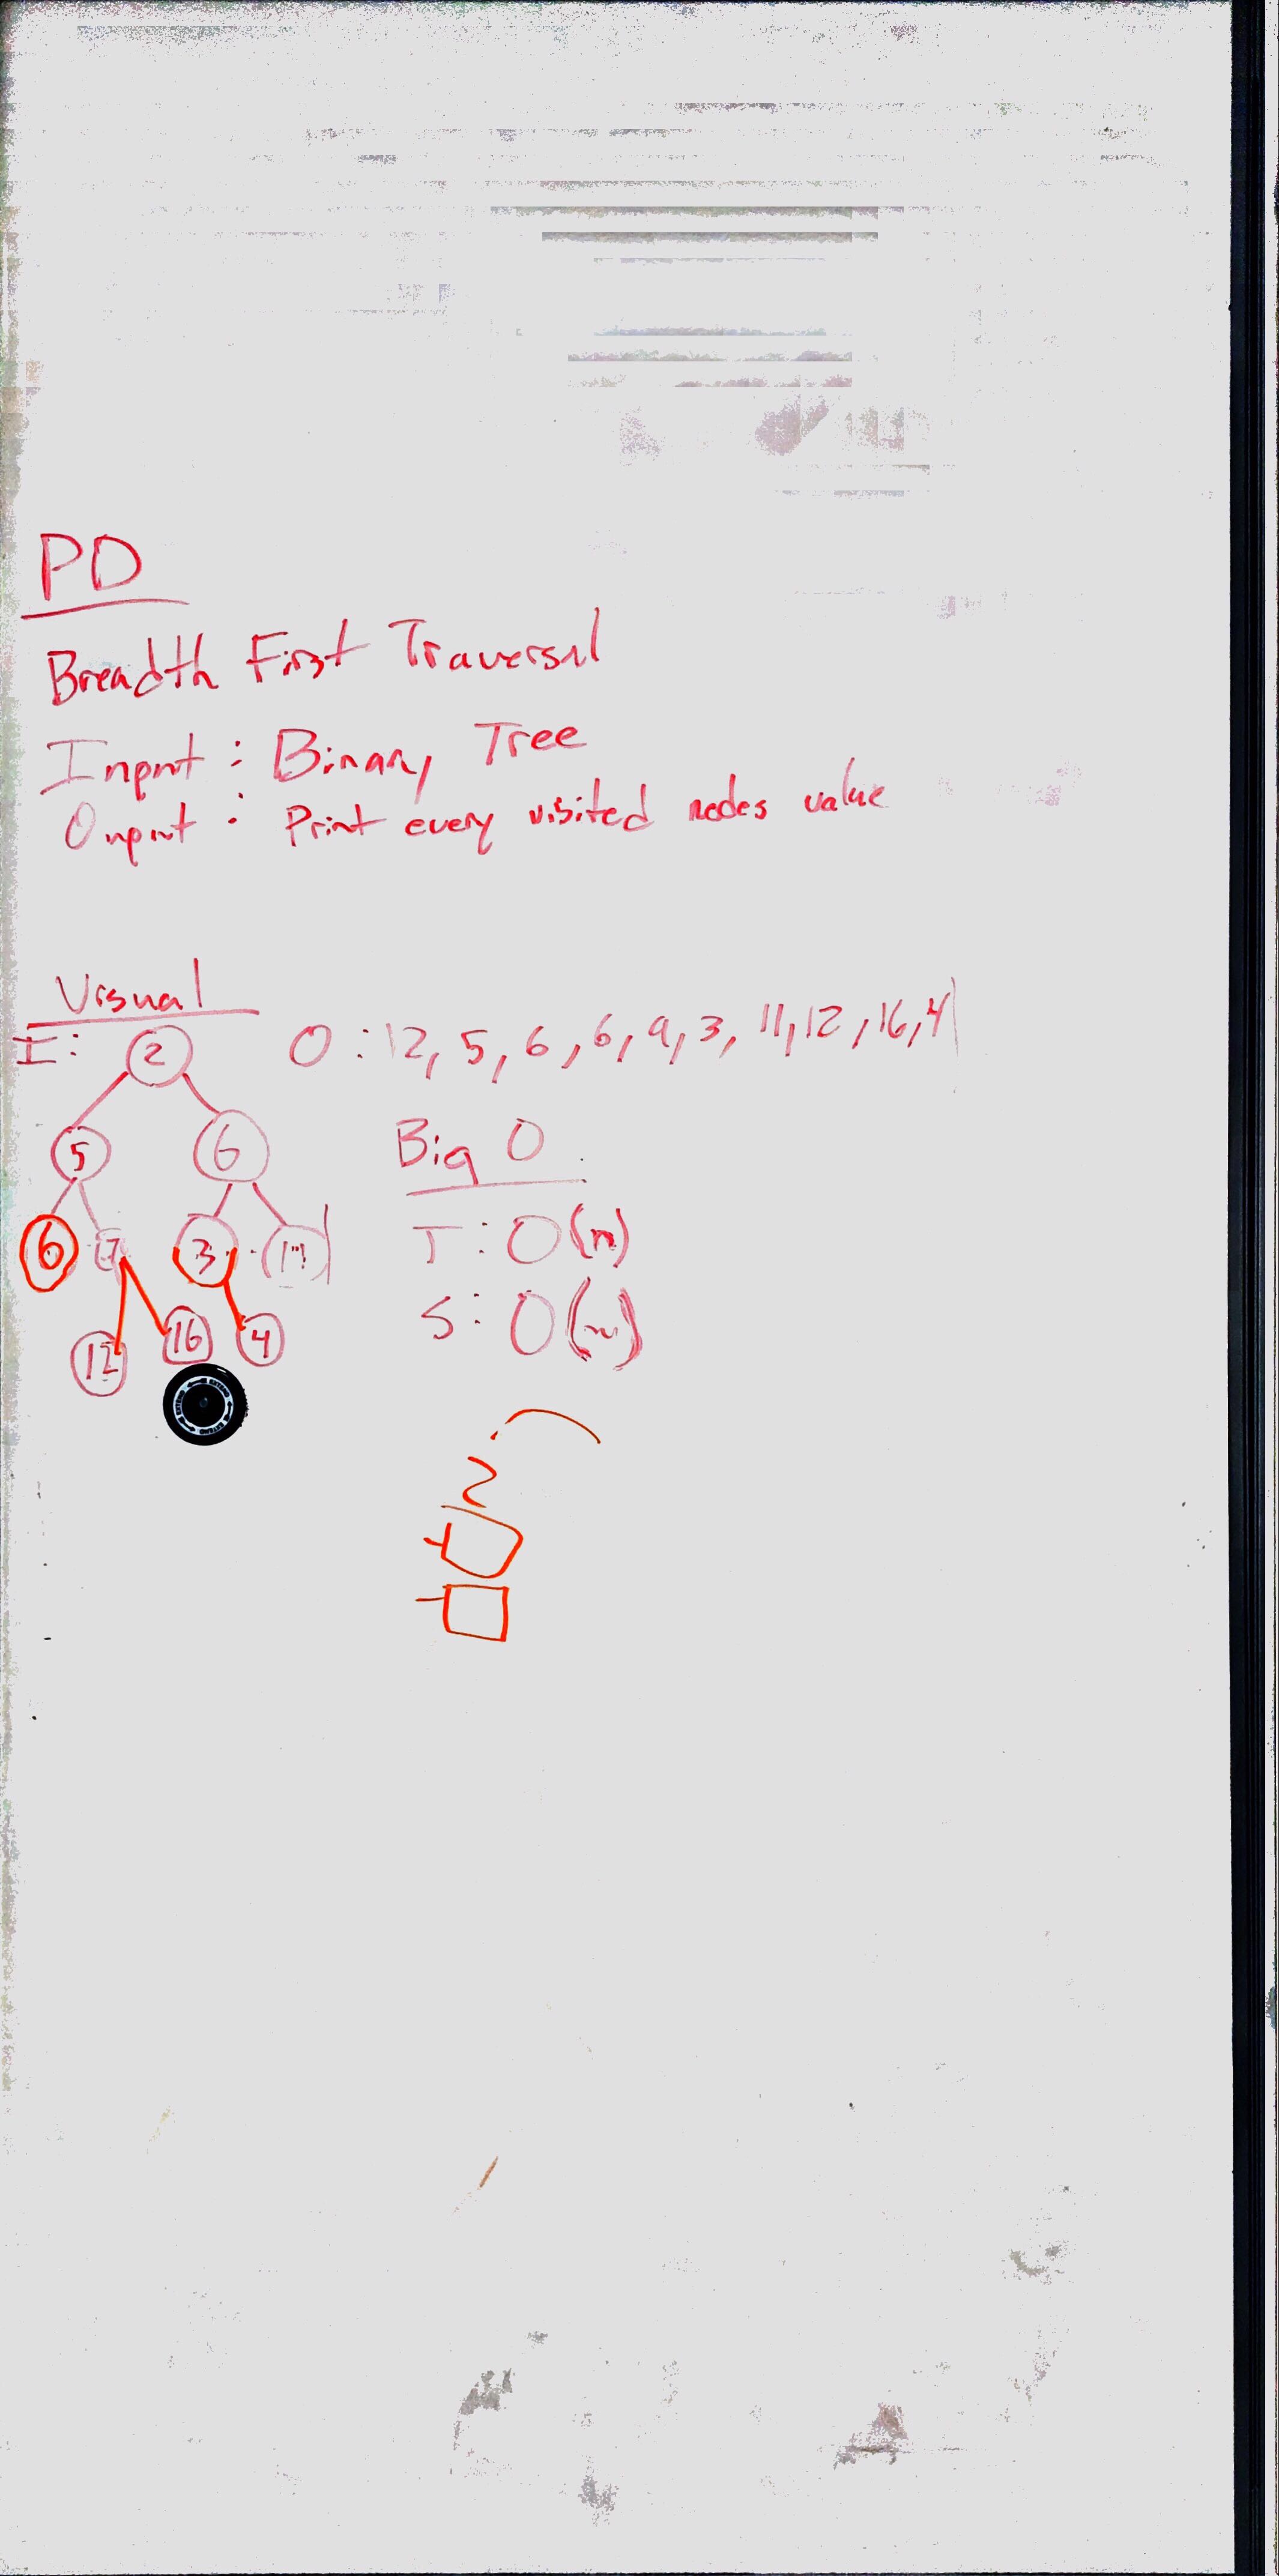 PD
Breadth First Traversal
Input : Binary Tree
Onput : Print every visited nodes value
Visual
I: O : 12, 5, 6, 6, 9, 3, 11, 12, 16, 4
2
5 6
6 3
12 16 4
Big O
T : O(n)
S : O(w)
2